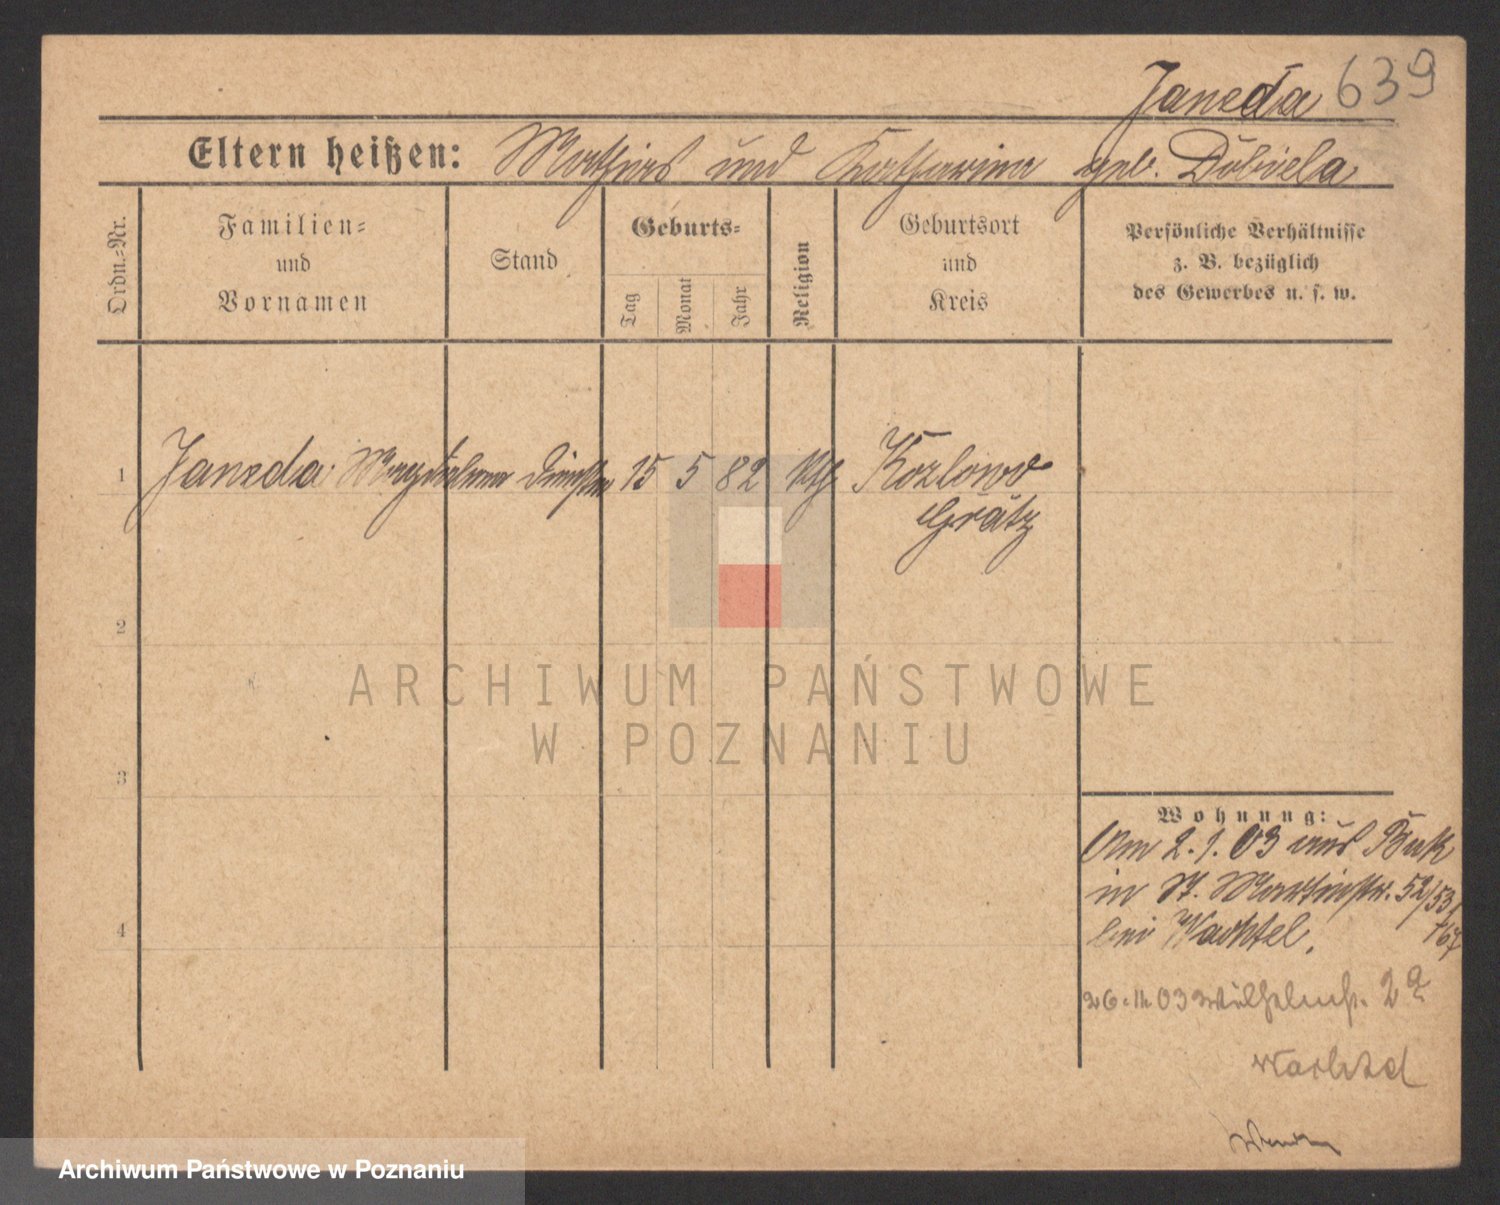 Janeda 639
Eltern heißen: Mathias und Katharina geb. Dubiela
Ordn.=Nr.
Familien=
und
Vornamen
Stand
Geburts=
Tag
Monat
Jahr
Religion
Geburtsort
und
Kreis
Persönliche Verhältnisse
z. B. bezüglich
des Gewerbes u. s. w.
1 Janeda Magdalena 15 5 82 kth Kozlowo
Grätz
2
ARCHIWUM PAŃSTWOWE
W POZNANIU
3
Wohnung:
Am 2.1.03 aus Buk
in St. Martinstr. 52/53
bei Wachtel.
4
26. 11 03 Wilhelmstr. 2a
Wachtel
Archiwum Państwowe w Poznaniu